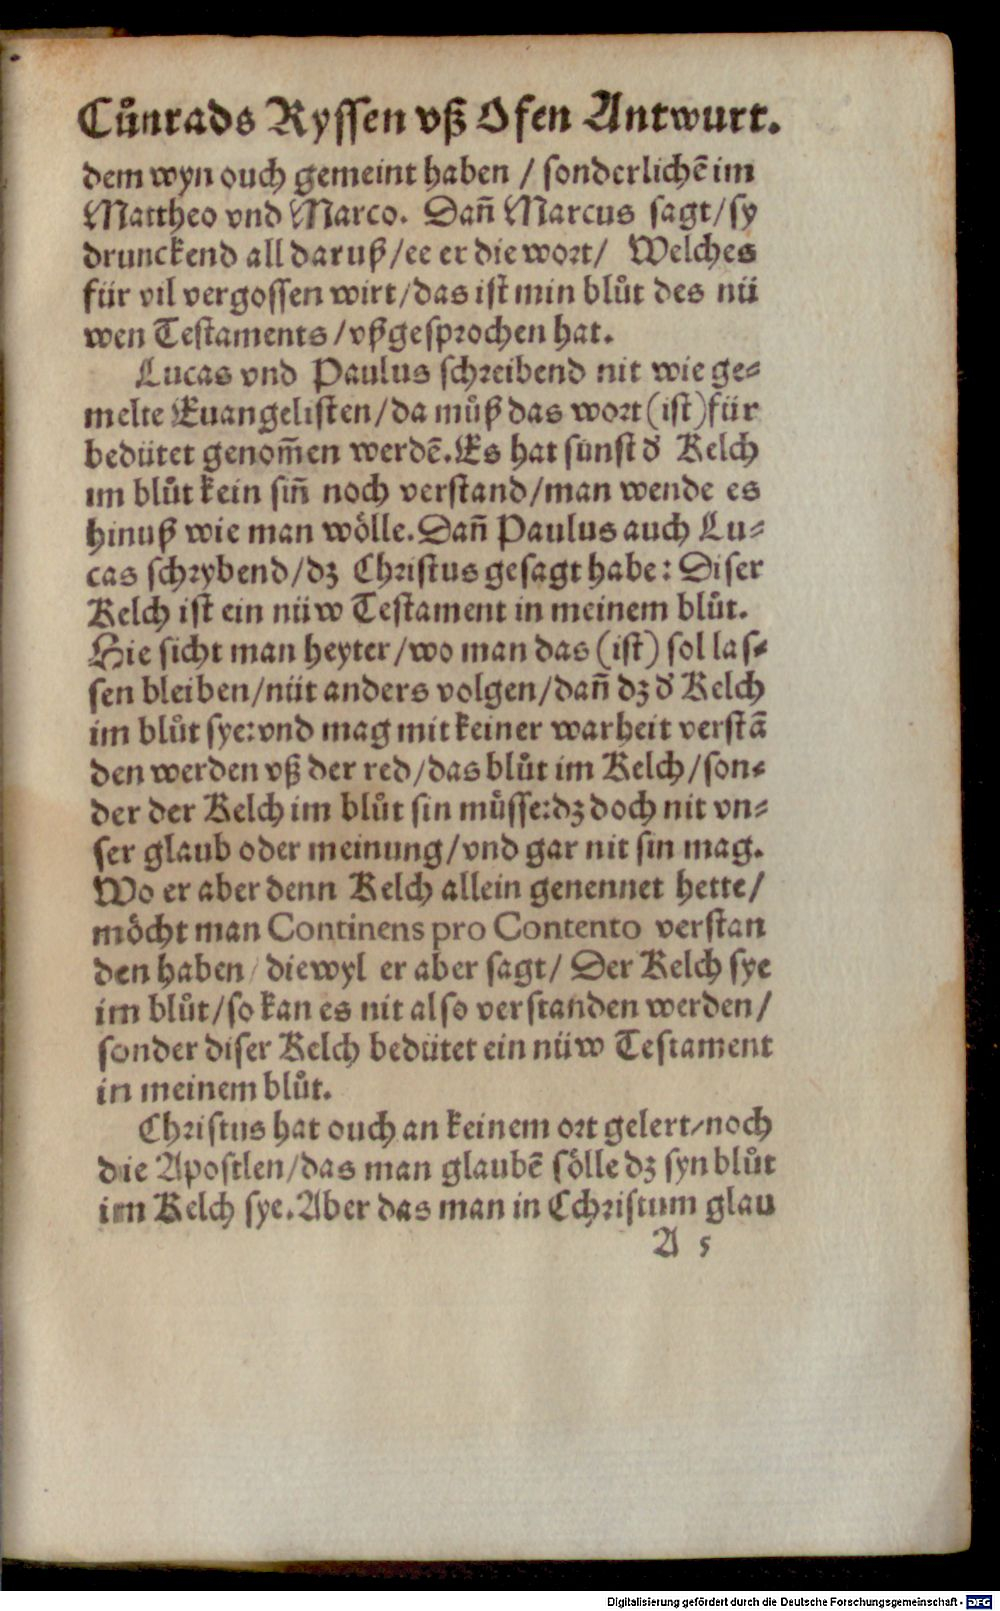 Cůnrads Ryssen vß Ofen Antwurt.
dem wyn ouch gemeint haben / sonderlichē im
Mattheo vnd Marco. Dañ Marcus sagt/sy
drunckend all daruß/ee er die wort/ Welches
für vil vergossen wirt/das ist min blůt des nü
wen Testaments/vßgesprochen hat.
Lucas vnd Paulus schreibend nit wie ge-
melte Euangelisten/da můß das wort (ist) für
bedütet genom̃en werdē. Es hat sunst d' Kelch
im blůt kein siñ noch verstand/man wende es
hinuß wie man wölle. Dañ Paulus auch Lu-
cas schrybend/dz Christus gesagt habe: Diser
Kelch ist ein nüw Testament in meinem blůt.
Hie sicht man heyter/wo man das (ist) sol las-
sen bleiben/nüt anders volgen/dañ dz d' Kelch
im blůt sye: vnd mag mit keiner warheit verstā
den werden vß der red/das blůt im Kelch/son-
der der Kelch im blůt sin müsse: dz doch nit vn-
ser glaub oder meinung/vnd gar nit sin mag.
Wo er aber denn Kelch allein genennet hette/
möcht man Continens pro Contento verstan
den haben/ diewyl er aber sagt/ Der Kelch sye
im blůt/so kan es nit also verstanden werden/
sonder diser Kelch bedütet ein nüw Testament
in meinem blůt.
Christus hat ouch an keinem ort gelert/noch
die Apostlen/das man glaubē sölle dz syn blůt
im Kelch sye. Aber das man in Cchristum glau
A 5
Digitalisierung gefördert durch die Deutsche Forschungsgemeinschaft - DFG